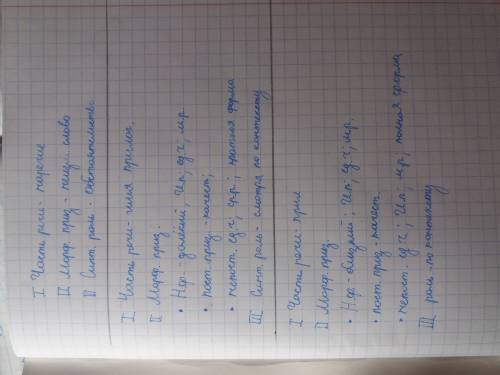 I Часть речи - наречие
II Морф. приз - неизм. слово
II Синт. роль - обстоятельство.
I Часть речи - имя прилаг.
II Морф приз
• Н.ф. - далёкий; И.п; ед.ч; м.р
• пост. приз. - качест;
• непост. ед.ч; ср.р.; краткая форма
III Синт. роль - смотря по контексту
I Часть речи - прил
II Морф приз.
• Н.ф - близкий; И.п; ед.ч; м.р.
• пост. приз - качест.
• непост. ед.ч; И.п; м.р; полная форма
III роль - по контексту